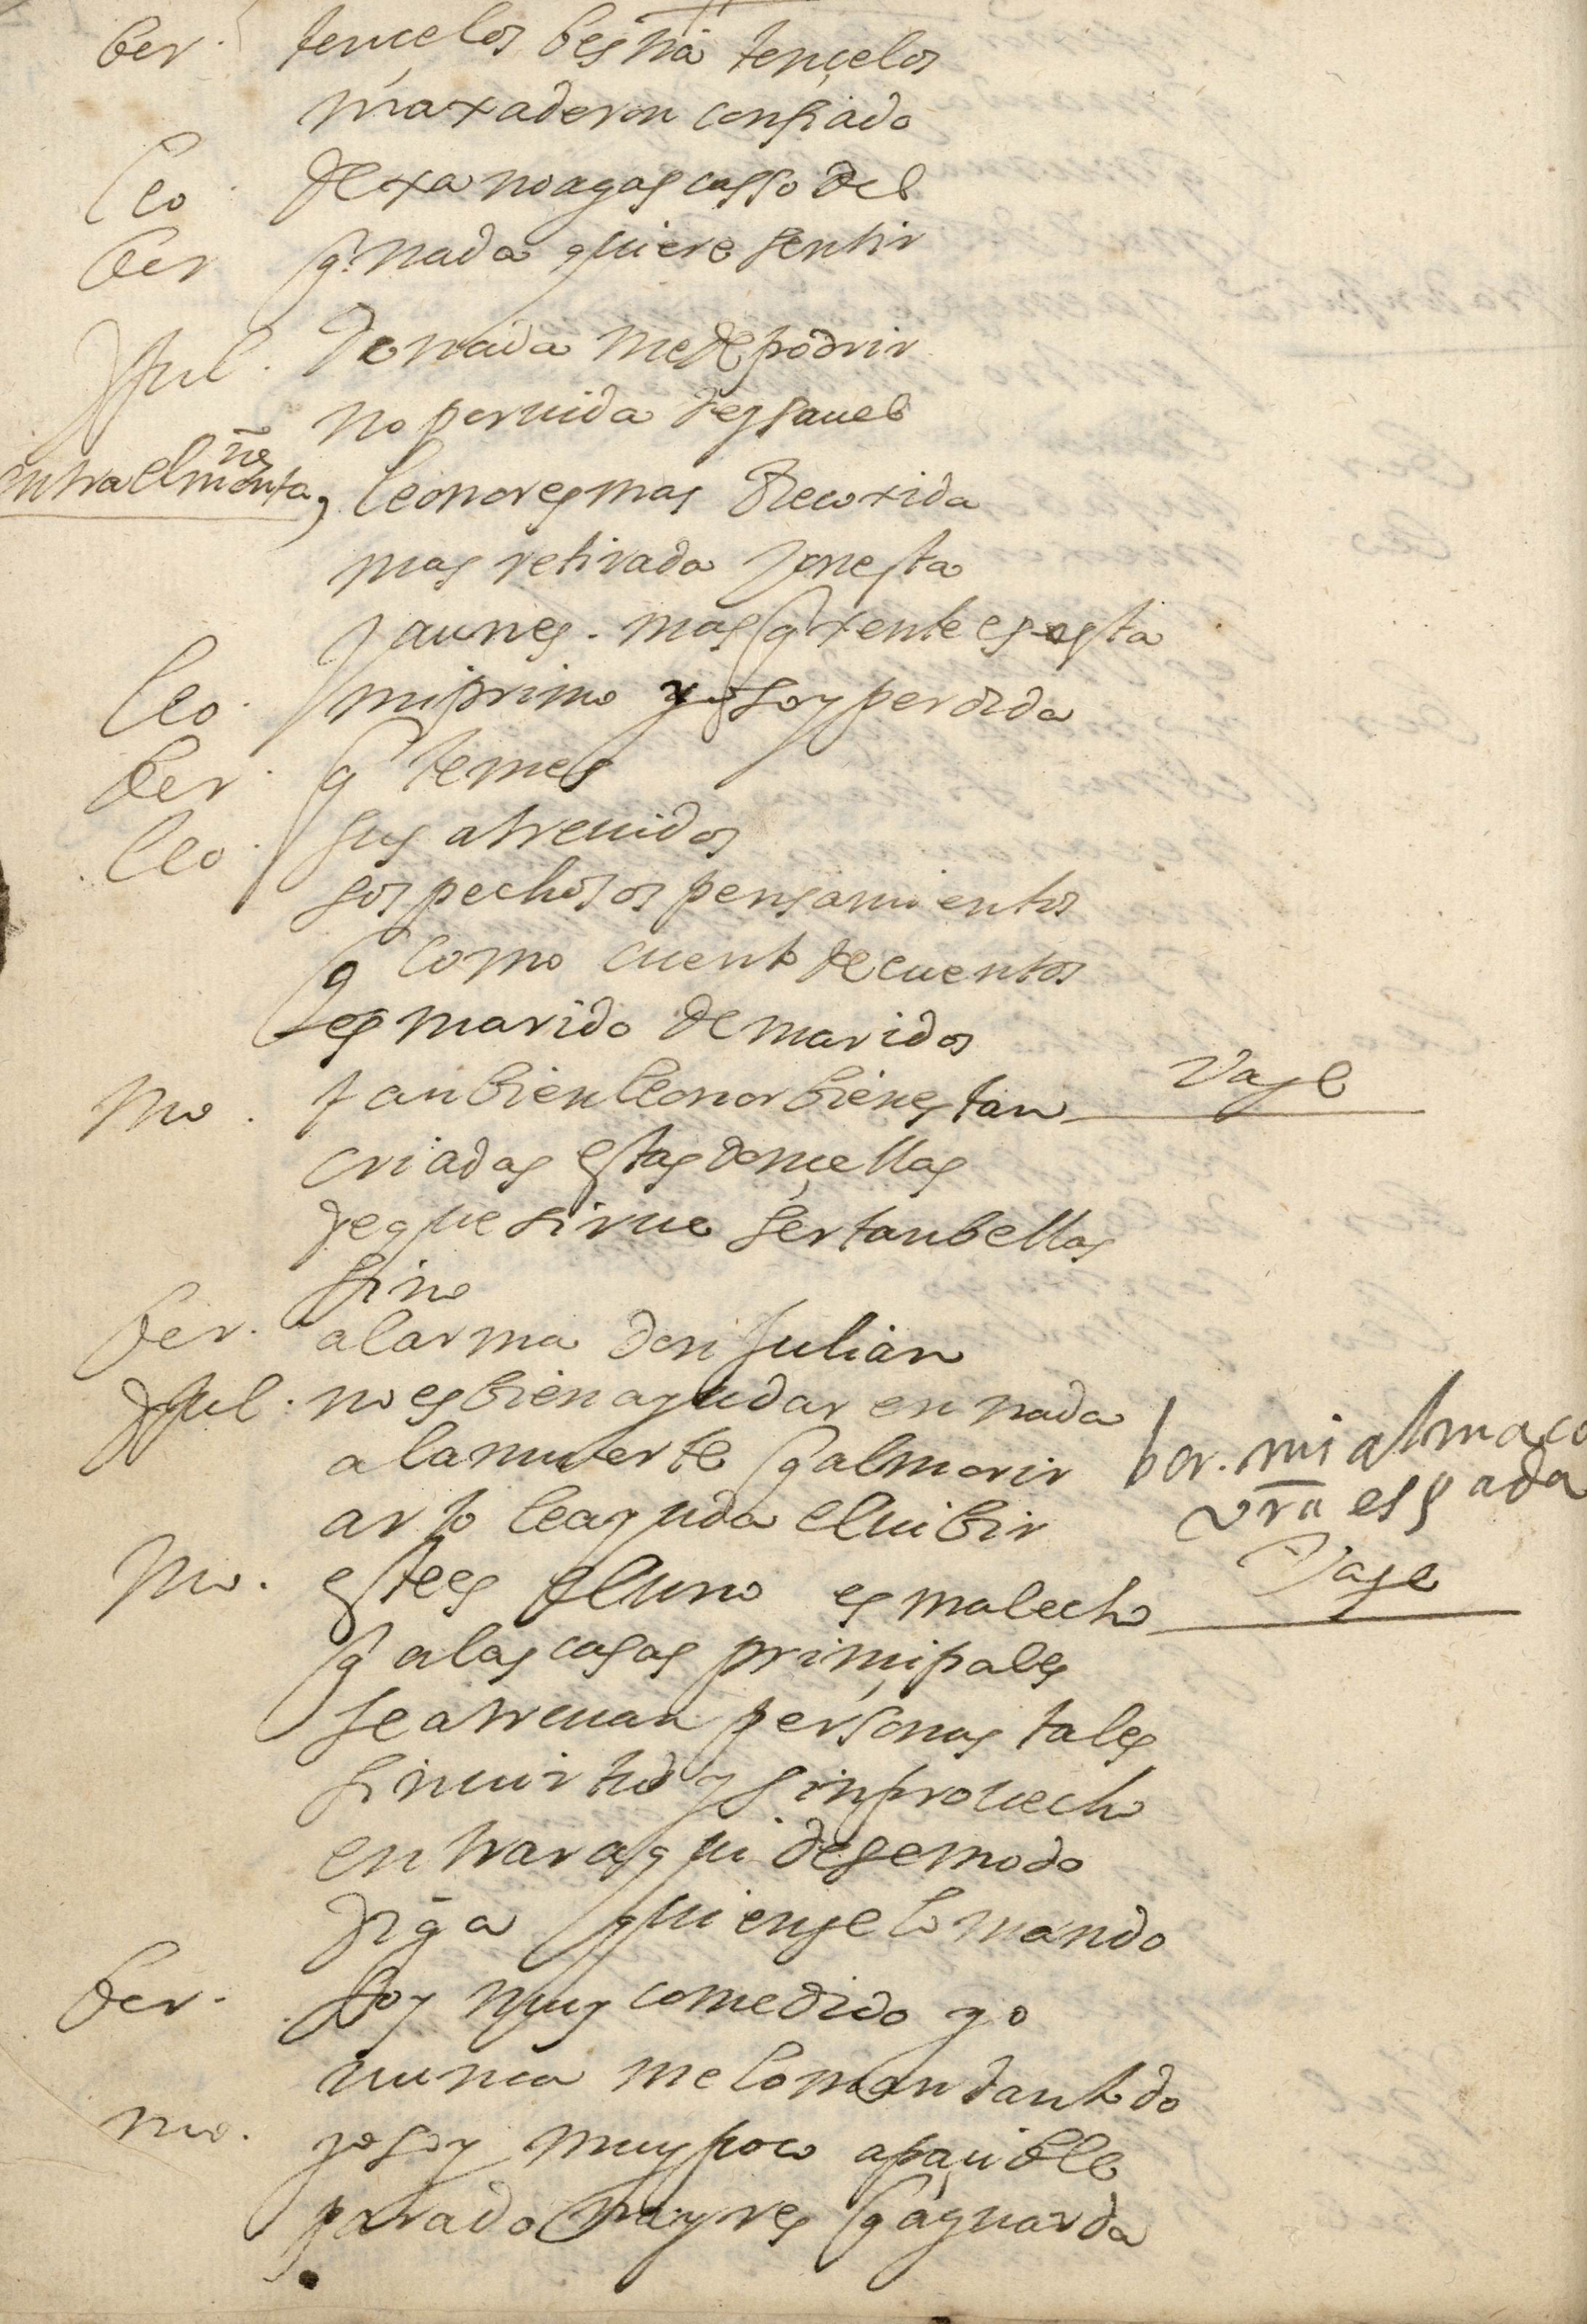 ber. tencelos bestia tençelos
maxaderon confiado
leo. dexa no agas casso del
ber q. nada quiere sentir
D Jul. de nada me de podrir
no por uida de ysauel
entra el monta,
ñes
leonor es mas Recoxida
mas retirada y onesta
y aun es. mas q xente es esta
leo. mi primo yo soy perdida
ber. q temes
leo. sus atreuidos
sospechosos pensamientos
q como cuento de cuentos
es marido de maridos
mo. tan bien leonor bien estan Vase
criadas estas donçellas
de que sirue ser tan bellas
sino
ber. al arma don Julian
D Jul. no es bien ayudar en nada
a la muerte q al morir
ber. mi alma co
arto le ayuda el uibir
vra espada
mo. este es el uno es mal echo Vase
q a las casas prinçipales
se atreuan personas tales
sin uirtud y sin prouecho
entrar aqui de se modo
diga quien se lo mando
ber. soy muy comedido yo
nunca me lo mandan todo
mo. yo soy muy poco apaçible
para donayres q aguarda